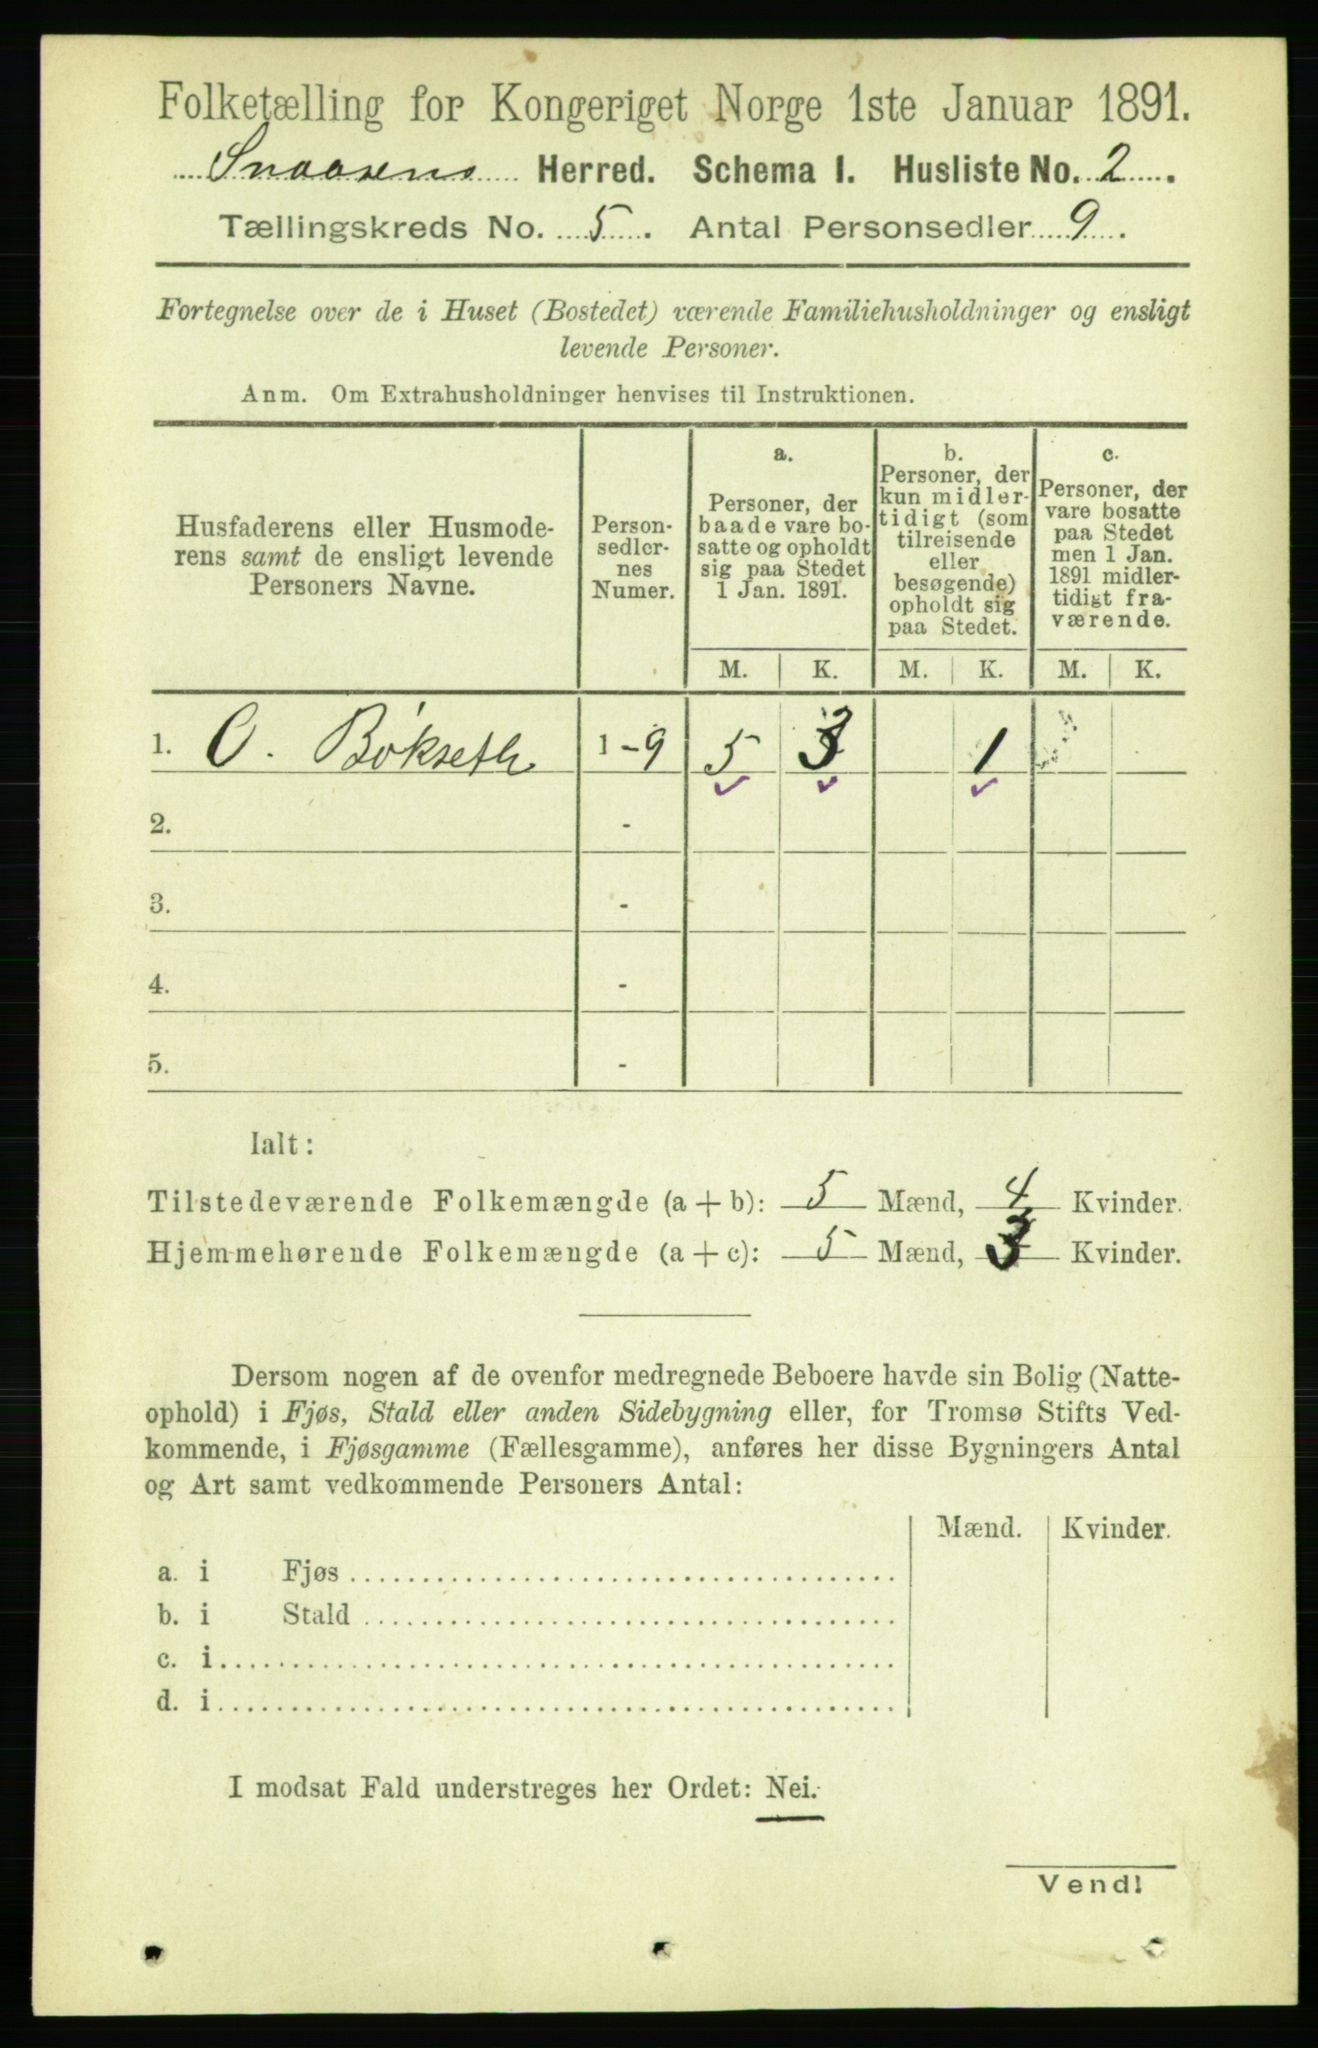 Folketælling for Kongeriget Norge 1ste Januar 1891.
Snaasens Herred. Schema I. Husliste No. 2.
Tællingskreds No. 5. Antal Personsedler 9.
Fortegnelse over de i Huset (Bostedet) værende Familiehusholdninger og ensligt
levende Personer.
Anm. Om Extrahusholdninger henvises til Instruktionen.
Husfaderens eller Husmode-
rens samt de ensligt levende
Personers Navne.
Person-
sedler-
nes
Numer.
a.
Personer, der
baade vare bo-
satte og opholdt
sig paa Stedet
1 Jan. 1891.
b.
Personer, der
kun midler-
tidigt (som
tilreisende
eller
besøgende)
opholdt sig
paa Stedet.
c.
Personer, der
vare bosatte
paa Stedet
men 1 Jan.
1891 midler-
tidigt fra-
værende.
M. K. M. K. M. K.
1. O. Bøkseth 1-9 5 3 1
2. -
3. -
4. -
5. -
Ialt:
Tilstedeværende Folkemængde (a + b): 5 Mænd, 4 Kvinder.
Hjemmehørende Folkemængde (a + c): 5 Mænd, 3 Kvinder.
Dersom nogen af de ovenfor medregnede Beboere havde sin Bolig (Natte-
ophold) i Fjøs, Stald eller anden Sidebygning eller, for Tromsø Stifts Ved-
kommende, i Fjøsgamme (Fællesgamme), anføres her disse Bygningers Antal
og Art samt vedkommende Personers Antal:
Mænd. Kvinder.
a. i Fjøs
b. i Stald
c. i
d. i
I modsat Fald understreges her Ordet: Nei.
Vend!